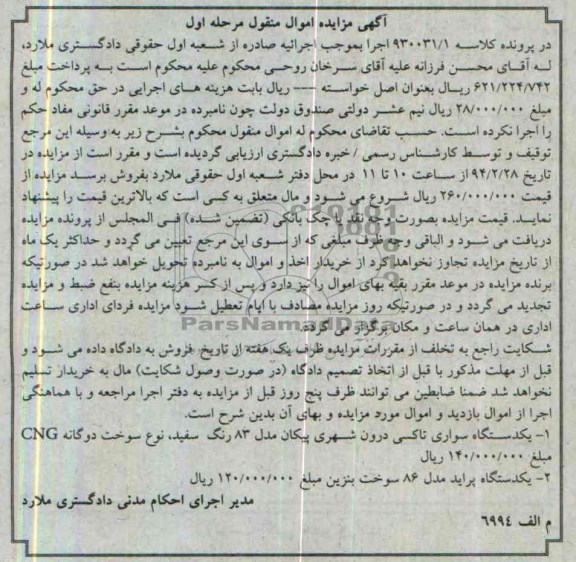 آگهی مزایده اموال منقول مرحله اول
در پرونده کلاسه ۹۳۰۰۳۱/۱ اجرا بموجب اجرائیه صادره از شعبه اول حقوقی دادگستری ملارد،
لـه آقـای محسـن فرزانه علیه آقای سـرخان روحـی محکوم علیه محکوم اسـت بـه پرداخت مبلغ
۶۲۱/۲۲۴/۷۴۲ ریـال بعنوان اصل خواسـته ---- ریال بابت هزینه هـای اجرایی در حق محکوم له و
مبلغ ۲۸/۰۰۰/۰۰۰ ریال نیم عشـر دولتی صندوق دولت چون نامبرده در موعد مقرر قانونی مفاد حکم
را اجرا نکرده اسـت. حسـب تقاضای محکوم له اموال منقول محکوم بشـرح زیر به وسیله این مرجع
توقیف و توسـط کارشـناس رسمی / خبره دادگستری ارزیابی گردیده است و مقرر است از مزایده در
تاریخ ۹۴/۲/۲۸ از سـاعت ۱۰ تا ۱۱ در محل دفتر شـعبه اول حقوقی ملارد بفروش برسـد مزایده از
قیمت ۲۶۰/۰۰۰/۰۰۰ ریال شـروع می شـود و مال متعلق به کسی است که بالاترین قیمت را پیشنهاد
نمایـد. قیمت مزایده بصورت وجه نقد یا چک بانکی (تضمین شـده) فـی المجلس از برونده مزایده
دریافت می شـود و الباقی وجه ظرف مبلغی که از سـوی این مرجع تعیین می گردد و حداکثر یک ماه
از تاریخ مزایده تجاوز نخواهد کرد از خریدار اخذ و اموال به نامبرده تحویل خواهد شد در صورتیکه
برنده مزایده در موعد مقرر بقیه بهای اموال را نپردازد و پس از کسر هزینه مزایده بنفع ضبط و مزایده
تجدید می گردد و در صورتیکه روز مزایده مصادف با ایام تعطیل شـود مزایده فردای اداری سـاعت
اداری در همان ساعت و مکان برگزار می گردد.
ParsNamadData
شـکایت راجع به تخلف از مقررات مزایده ظرف یک هفته از تاریخ فروش به دادگاه داده می شـود و
قبل از مهلت مذکور با قبل از اتخاذ تصمیم دادگاه (در صورت وصول شکایت) مال به خریدار تسلیم
نخواهد شد ضمنا ضابطین می توانند ظرف پنج روز قبل از مزایده به دفتر اجرا مراجعه و با هماهنگی
اجرا از اموال بازدید و اموال مورد مزایده و بهای آن بدین شرح است.
۱- یکدسـتگاه سواری تاکسـی درون شـهری پیکان مدل ۸۳ رنگ سفید، نوع سوخت دوگانه CNG
مبلغ ۱۴۰/۰۰۰/۰۰۰ ریال
۲- یکدستگاه پراید مدل ۸۶ سوخت بنزین مبلغ ۱۲۰/۰۰۰/۰۰۰ ریال
مدیر اجرای احکام مدنی دادگستری ملارد
م الف ۶۹۹۴